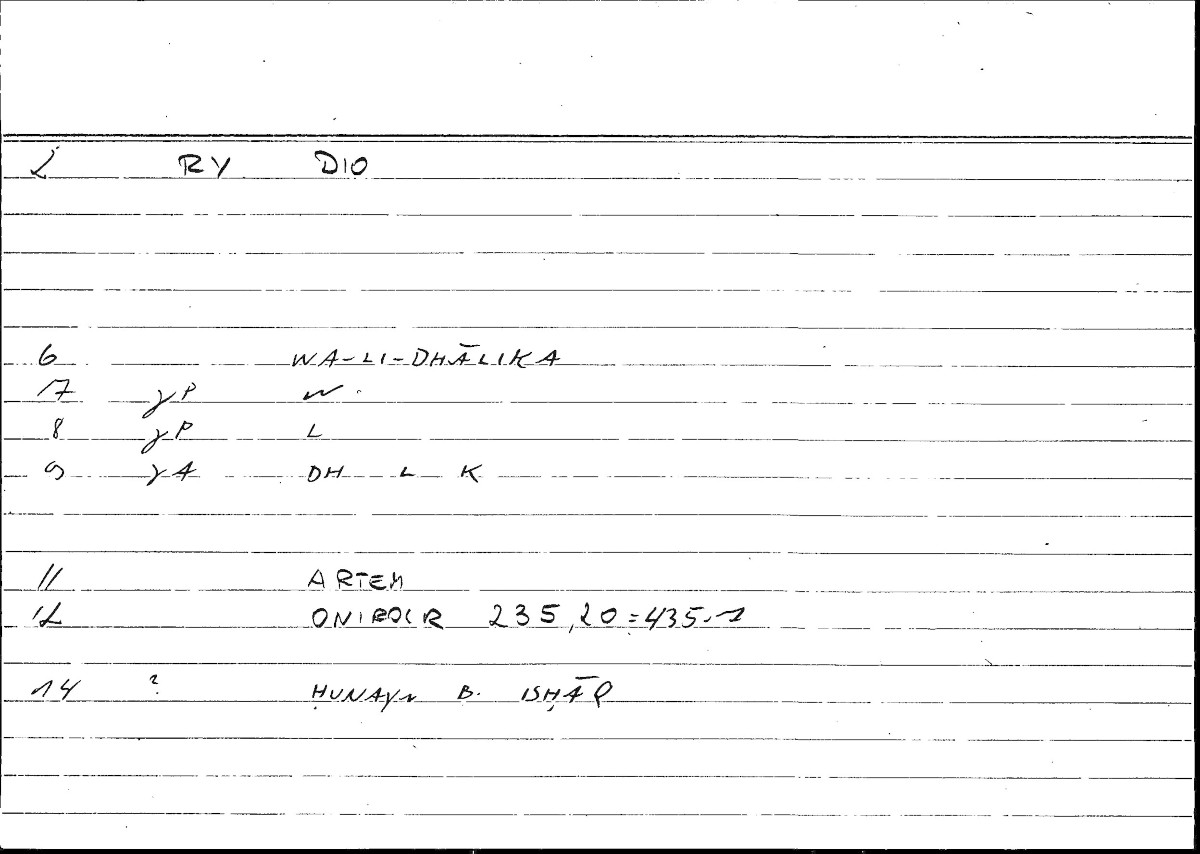 2 RY DIO
6 WA-LI-DHĀLIKA
17 γP W.
8 γP L
9 γA DH L K
11 ARTEM
12 ONIROCR 235,20=435.1
14 ? ḤUNAYN B. ISḤĀQ